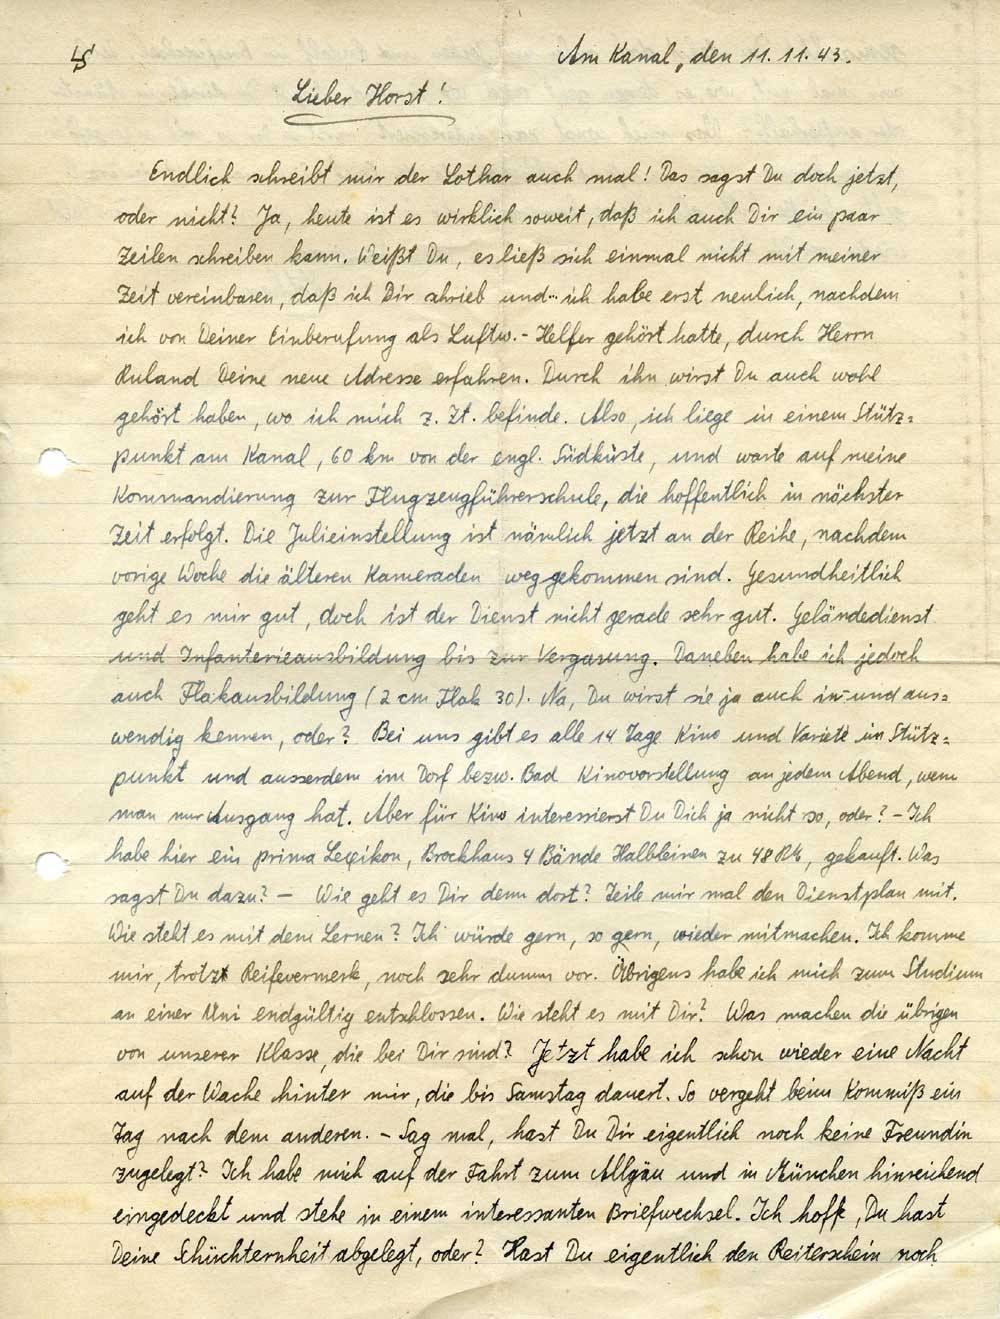 LS
Am Kanal, den 11.11.43.
Lieber Horst!
Endlich schreibt mir der Lothar auch mal! Das sagst Du doch jetzt,
oder nicht? Ja, heute ist es wirklich soweit, daß ich auch Dir ein paar
Zeilen schreiben kann. Weißt Du, es ließ sich einmal nicht mit meiner
Zeit vereinbaren, daß ich Dir schrieb und ich habe erst neulich, nachdem
ich von Deiner Einberufung als Luftw.-Helfer gehört hatte, durch Herrn
Ruland Deine neue Adresse erfahren. Durch ihn wirst Du auch wohl
gehört haben, wo ich mich z. Zt. befinde. Also, ich liege in einem Stütz=
punkt am Kanal, 60 km von der engl. Südküste, und warte auf meine
Kommandierung zur Flugzeugführerschule, die hoffentlich in nächster
Zeit erfolgt. Die Julieinstellung ist nämlich jetzt an der Reihe, nachdem
vorige Woche die älteren Kameraden weggekommen sind. Gesundheitlich
geht es mir gut, doch ist der Dienst nicht gerade sehr gut. Geländedienst
und Infanterieausbildung bis zur Vergasung. Daneben habe ich jedoch
auch Flakausbildung (2 cm Flak 30). Na, Du wirst sie ja auch in- und aus=
wendig kennen, oder? Bei uns gibt es alle 14 Tage Kino und Varieté im Stütz=
punkt und ausserdem im Dorf bezw. Bad Kinovorstellung an jedem Abend, wenn
man nur Ausgang hat. Aber für Kino interessierst Du Dich ja nicht so, oder? - Ich
habe hier ein prima Lexikon, Brockhaus 4 Bände Halbleinen zu 48 RM, gekauft. Was
sagst Du dazu? - Wie geht es Dir denn dort? Teile mir mal den Dienstplan mit.
Wie steht es mit dem Lernen? Ich würde gern, so gern, wieder mitmachen. Ich komme
mir, trotz Reifevermerk, noch sehr dumm vor. Übrigens habe ich mich zum Studium
an einer Uni endgültig entschlossen. Wie steht es mit Dir? Was machen die übrigen
von unserer Klasse, die bei Dir sind? Jetzt habe ich schon wieder eine Nacht
auf der Wache hinter mir, die bis Samstag dauert. So vergeht beim Kommiß ein
Tag nach dem anderen. - Sag mal, hast Du Dir eigentlich noch keine Freundin
zugelegt? Ich habe mich auf der Fahrt zum Allgäu und in München hinreichend
eingedeckt und stehe in einem interessanten Briefwechsel. Ich hoffe, Du hast
Deine Schüchternheit abgelegt, oder? Hast Du eigentlich den Reiterschein noch